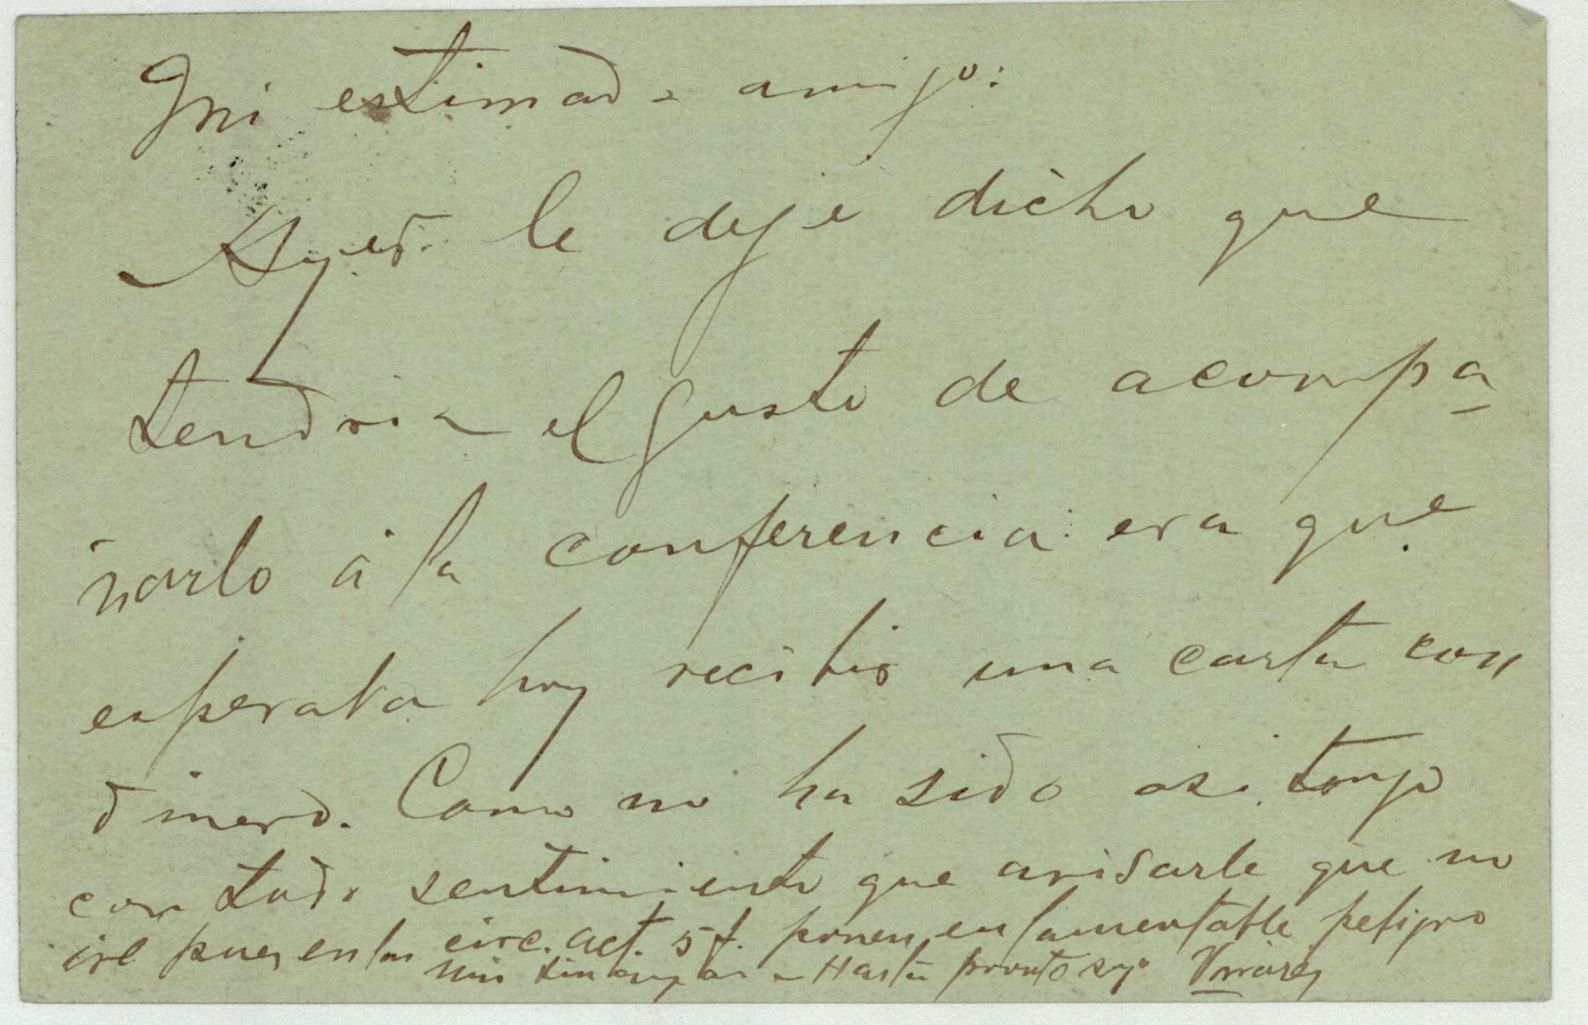 Mi estimado amigo:
Ayer le dejé dicho que
tendria el gusto de acompa-
ñarlo á la conferencia: era que
esperaba hoy recibir una carta con
dinero. Como no ha sido asi tengo
con todo sentimiento que avisarle que no
iré pues en las circ. act. 5 f. ponen en lamentable peligro
mis finanzas - Hasta pronto suyo